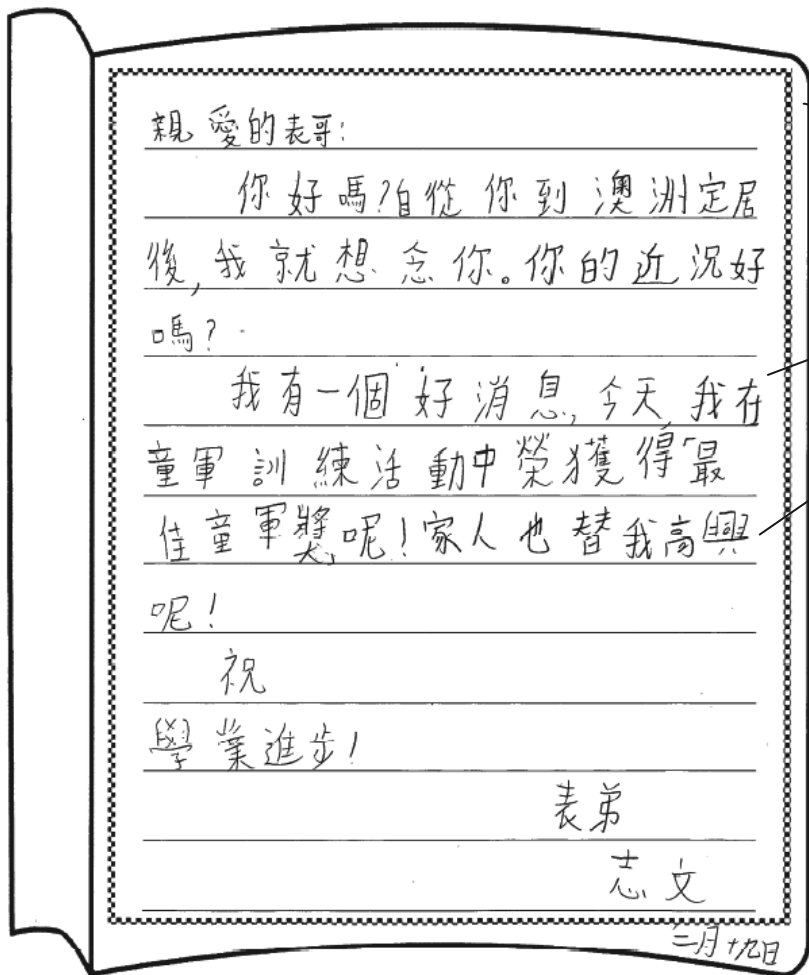 親愛的表哥:
你好嗎?自從你到澳洲定居
後,我就想念你。你的近況好
嗎?
我有一個好消息,今天,我在
童軍訓練活動中榮獲得「最
佳童軍獎」呢!家人也替我高興
呢!
祝
學業進步!
表弟
志文
三月十九日